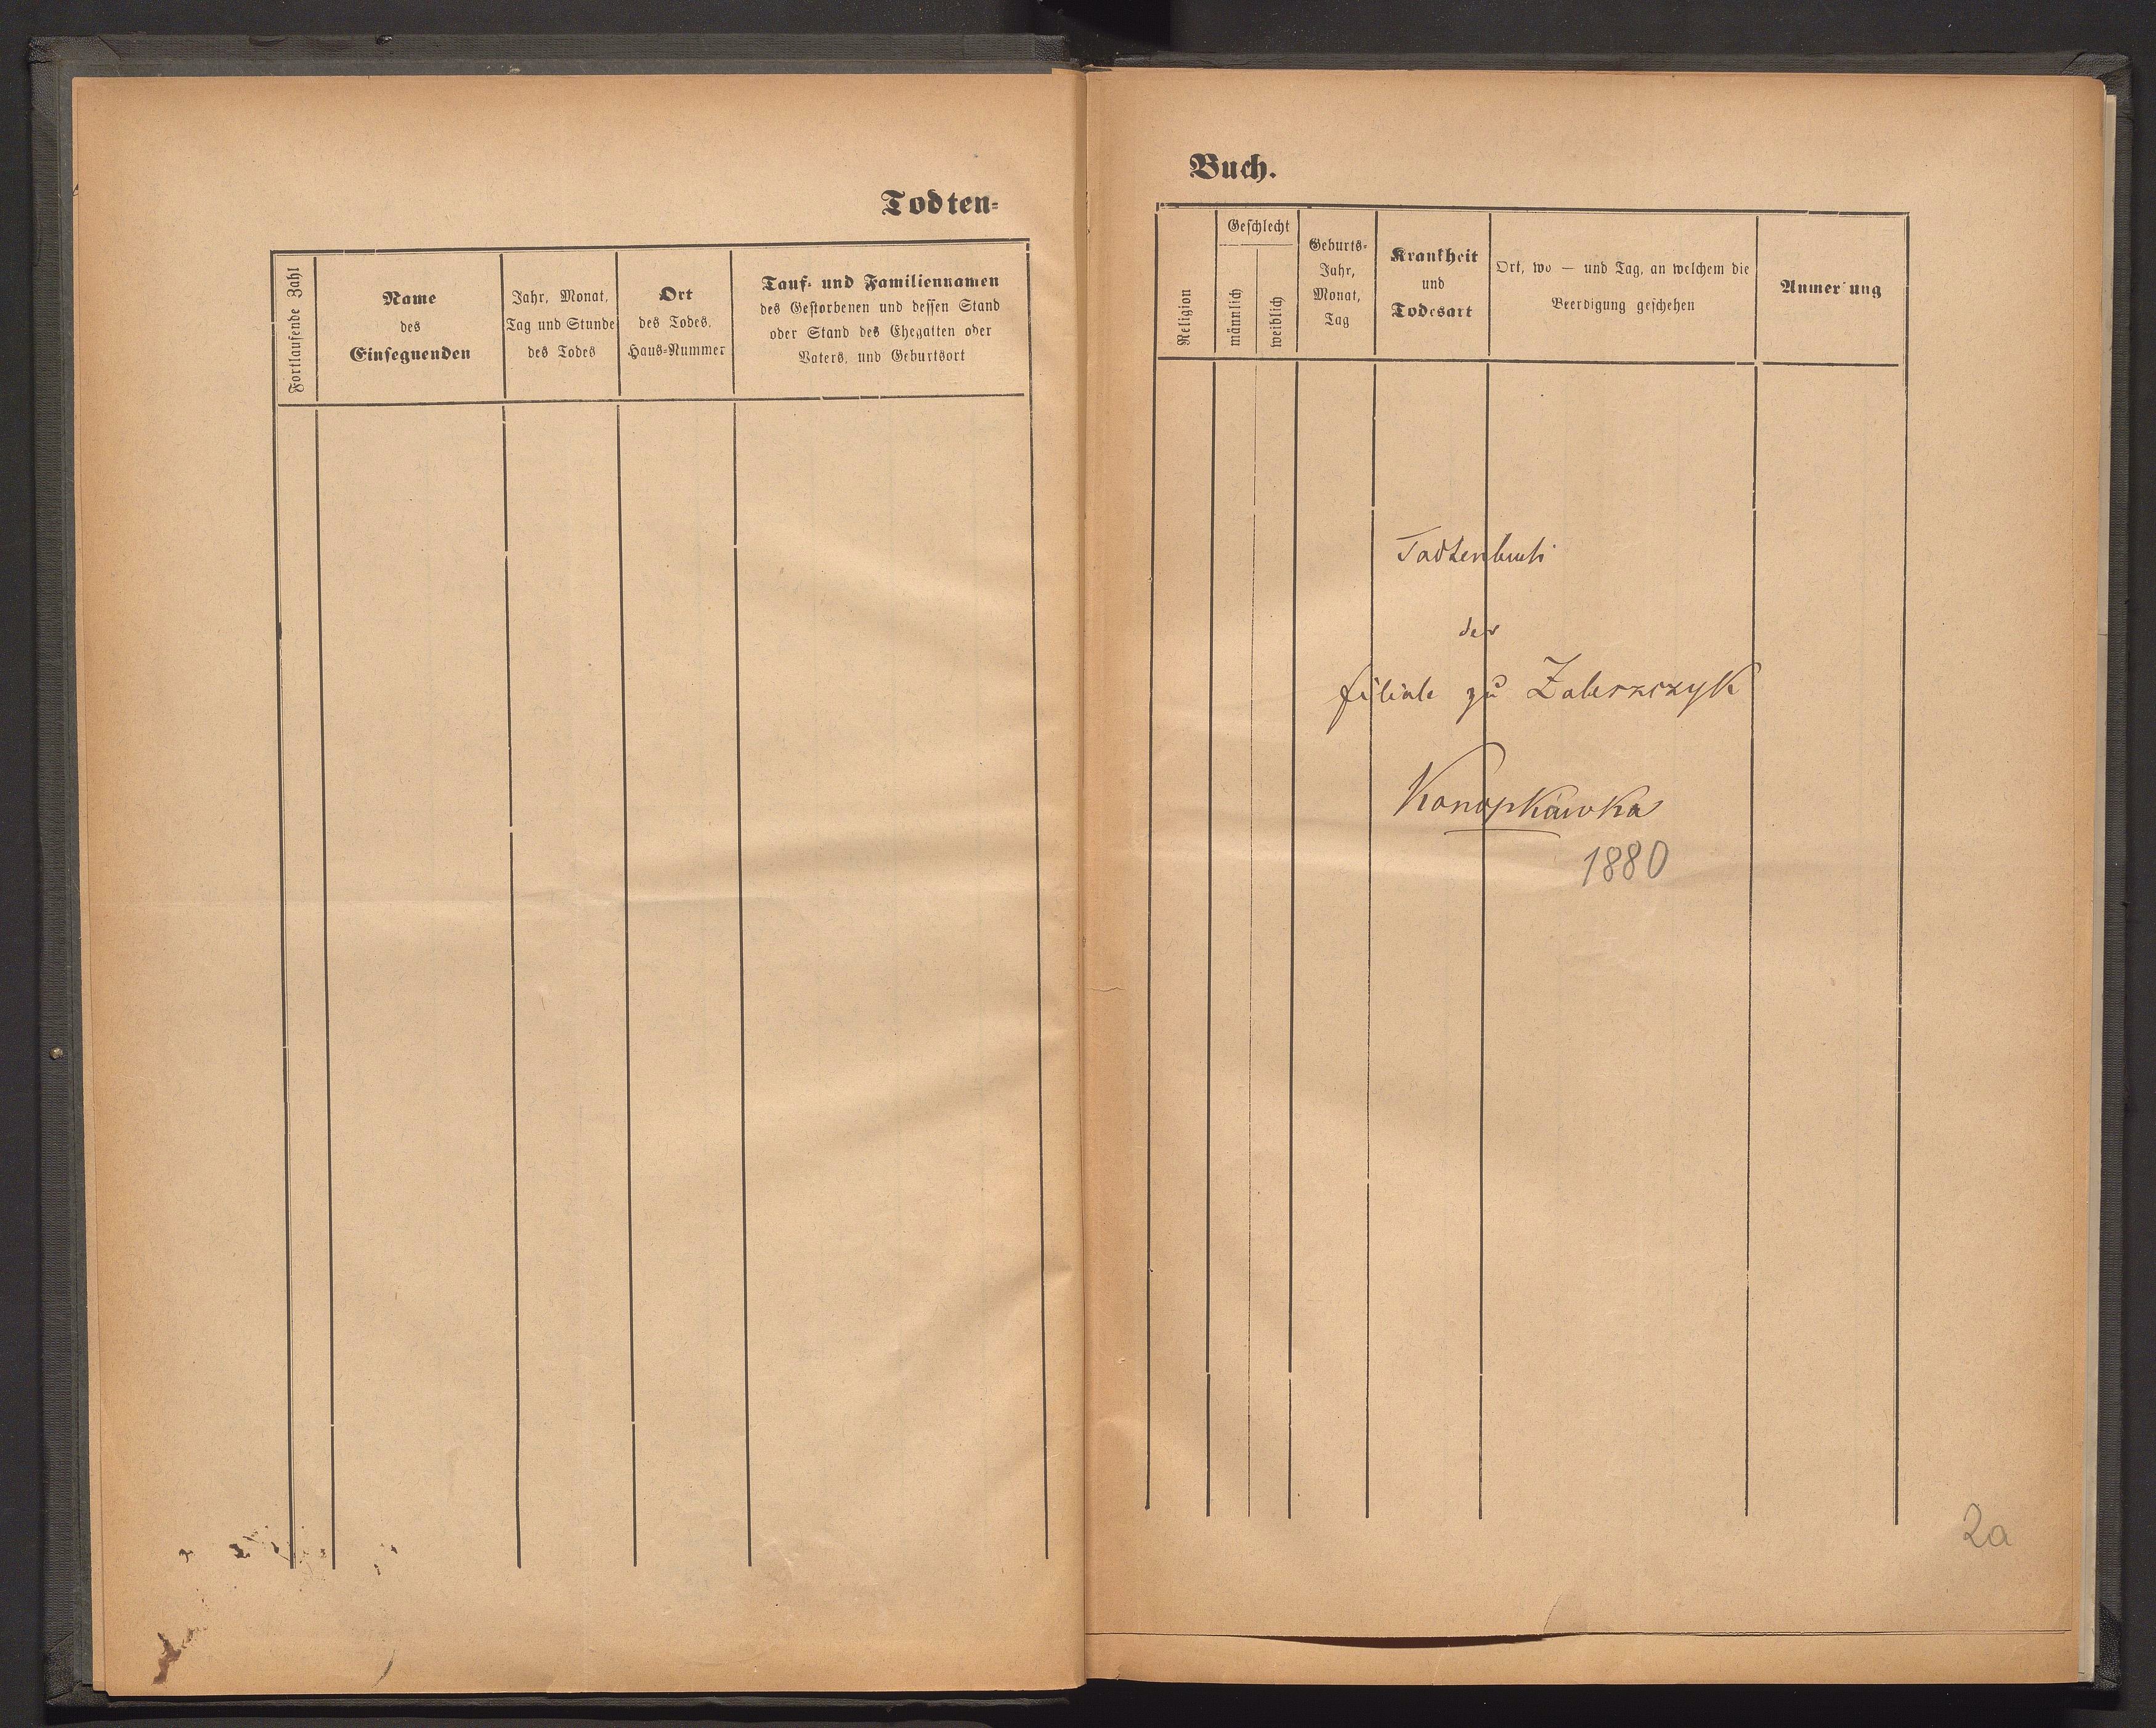 Todten-
Fortlaufende Zahl
Name
des
Einsegnenden
Jahr, Monat,
Tag und Stunde
des Todes
Ort
des Todes,
Haus-Nummer
Tauf- und Familiennamen
des Gestorbenen und dessen Stand
oder Stand des Ehegatten oder
Vaters, und Geburtsort
Buch.
Religion
Geschlecht
männlich
weiblich
Geburts-
Jahr,
Monat,
Tag
Krankheit
und
Todesart
Ort, wo — und Tag, an welchem die
Beerdigung geschehen
Anmer ung
Todtenbuch
der
filiale zu Zaleszczyk
Konopkówka
1880
2a